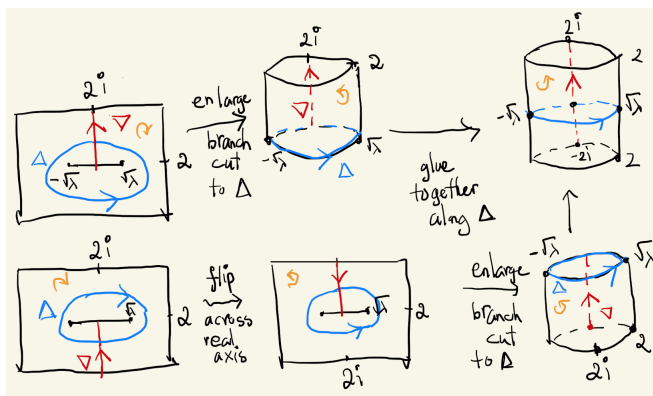 2i
∇
Δ
-√λ
√λ
2
enlarge
branch
cut
to Δ
2i
2
∇
-√λ
√λ
Δ
glue
together
along Δ
2i
2
-√λ
√λ
-2i
2
2i
Δ
√λ
2
∇
flip
across
real
axis
√λ
2
2i
enlarge
branch
cut
to Δ
-√λ
√λ
Δ
∇
2
2i